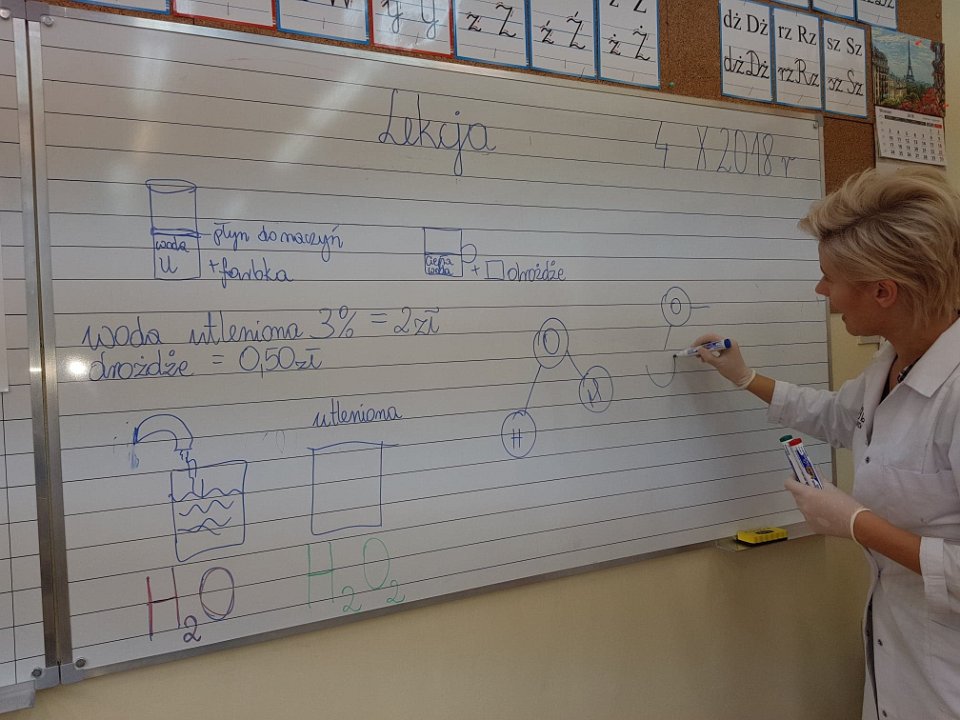 ź Ź
ż Ż
dż Dż
dż Dż
rz Rz
rz Rz
sz Sz
sz Sz
Lekcja
4 X 2018 r
woda
U
płyn do naczyń
+ farbka
ciepła
woda
+ drożdże
woda utleniona 3% = 2 zł
drożdże = 0,50 zł
O
H
O
utleniona
H2O
H2O2